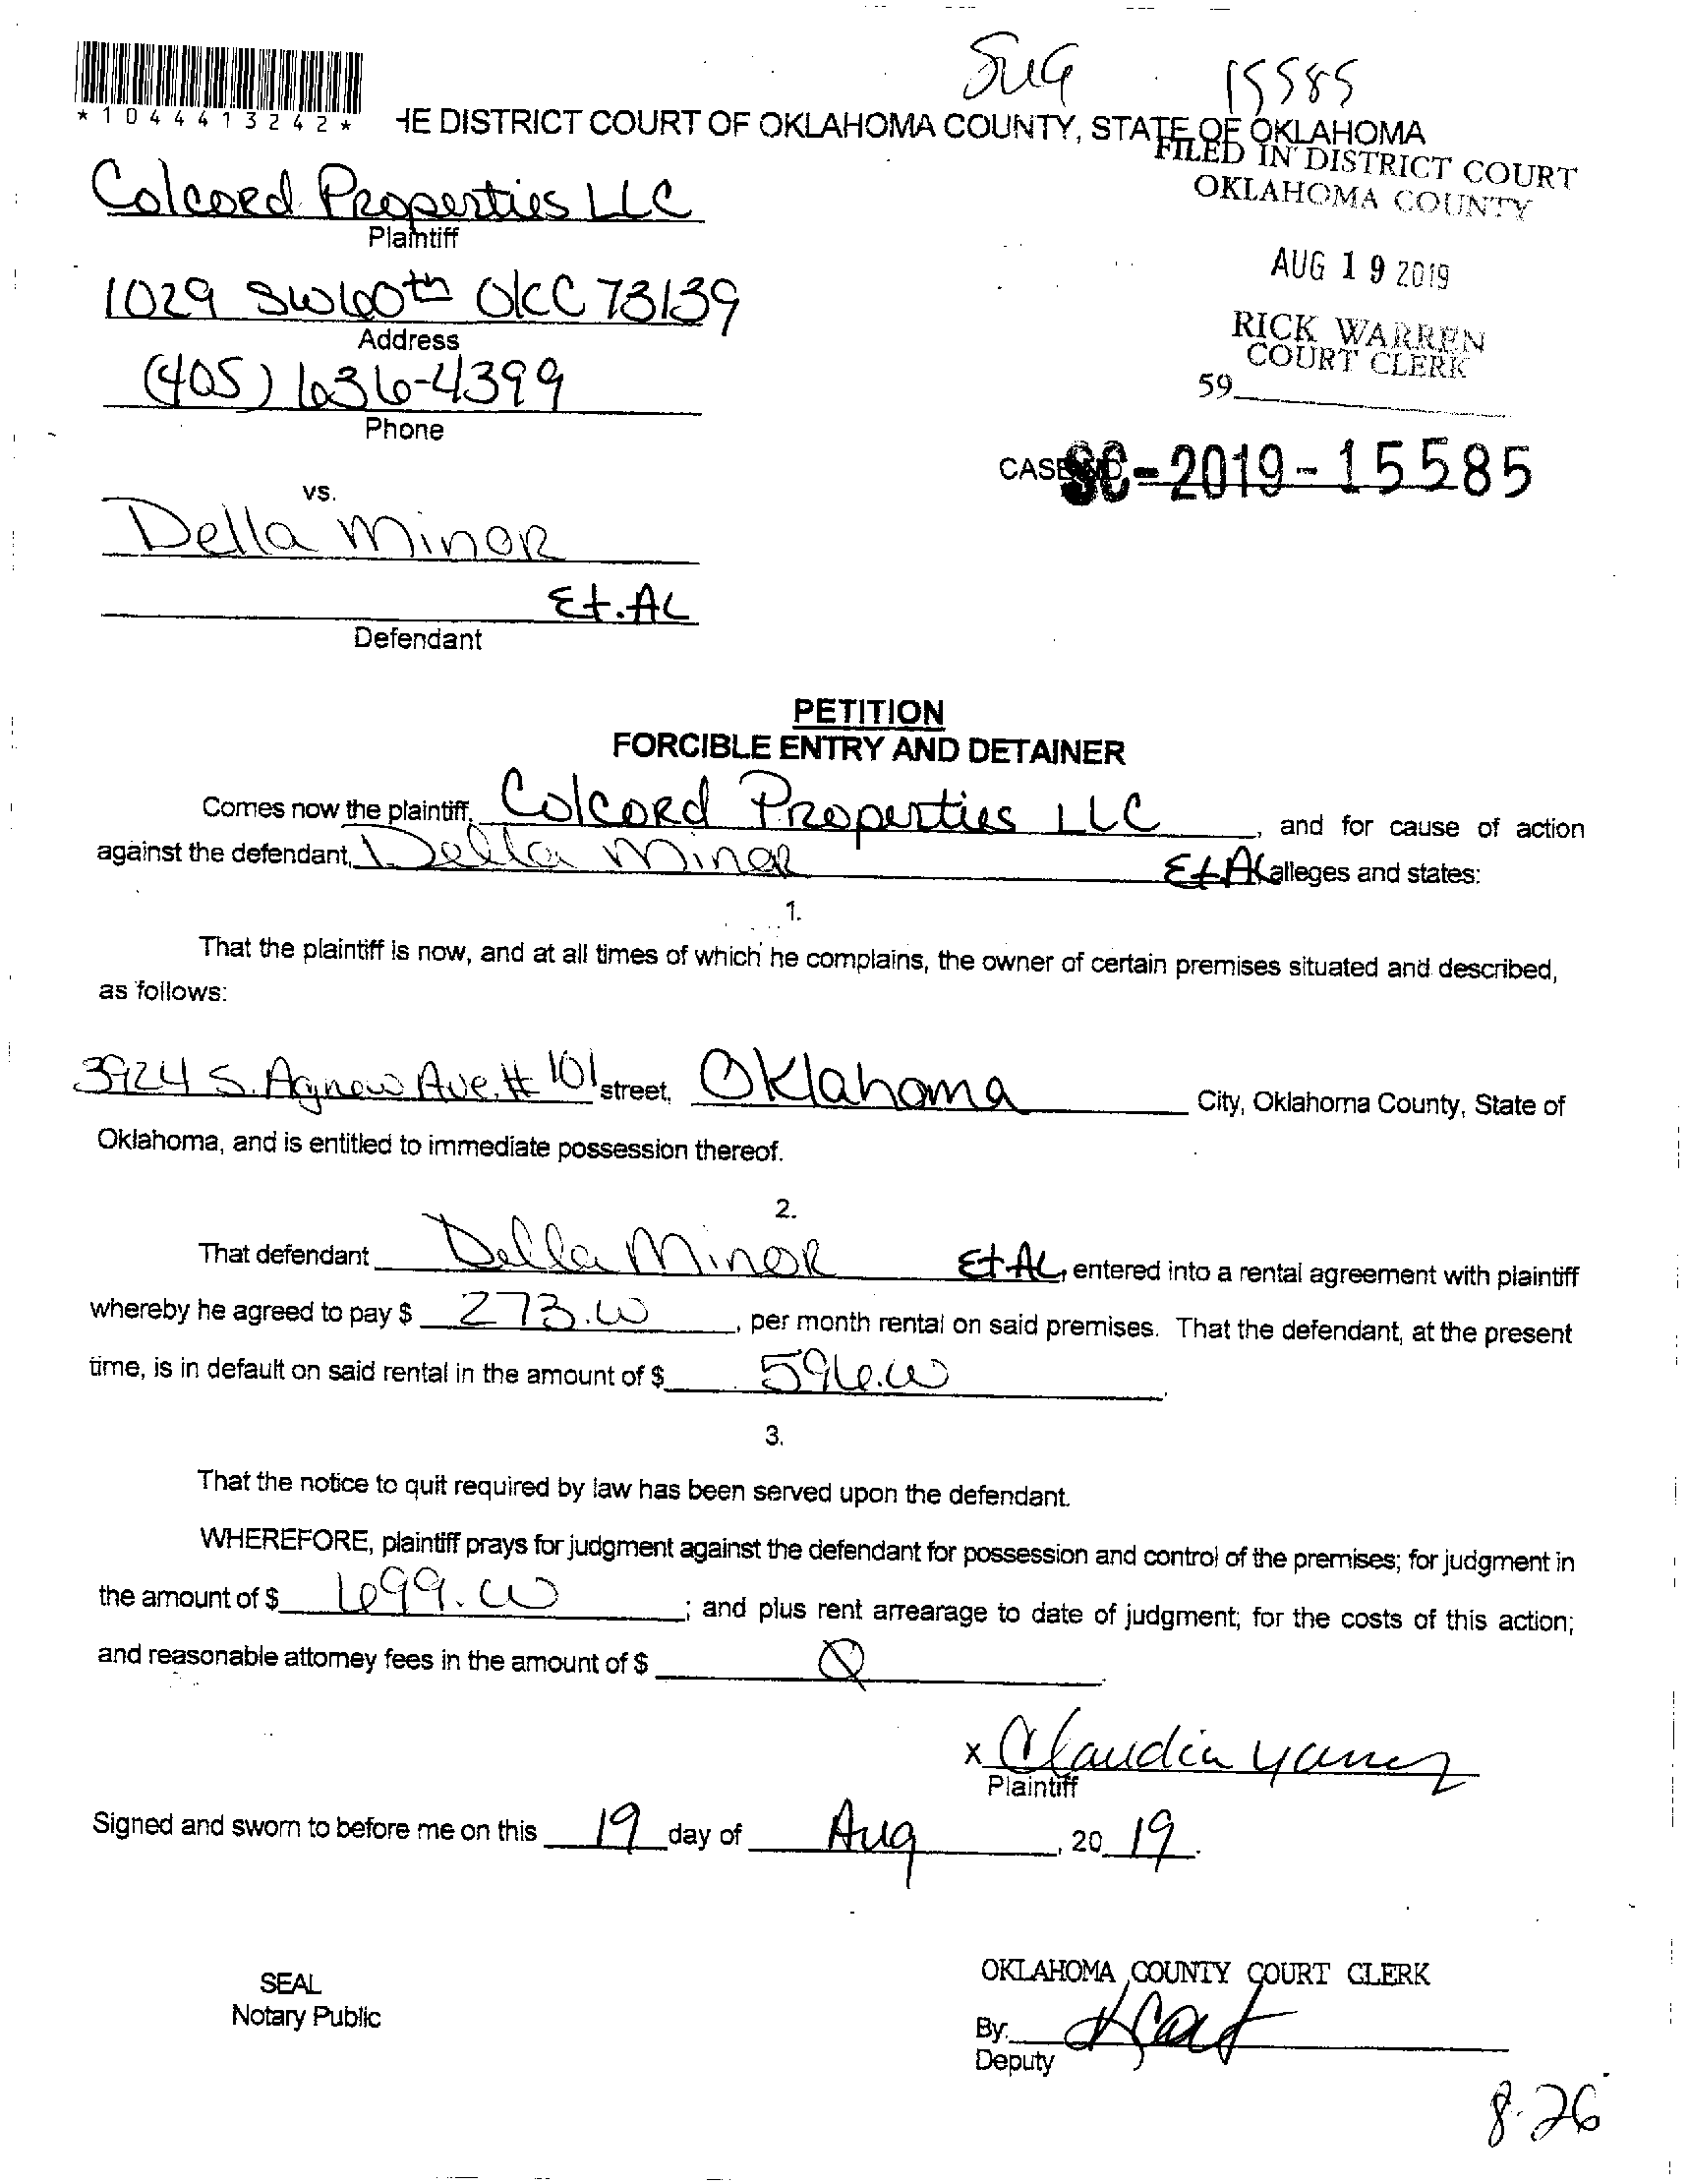 SUG 15585
*1044413242*
HE DISTRICT COURT OF OKLAHOMA COUNTY, STATE OF OKLAHOMA
FILED IN DISTRICT COURT
OKLAHOMA COUNTY
Colcord Properties LLC
Plaintiff
AUG 19 2019
1029 SW 60th OKC 73139
Address
RICK WARREN
COURT CLERK
(405) 636-4399
59
Phone
CASE NO. SC-2019-15585
vs.
Della Minor
Et.AL
Defendant
PETITION
FORCIBLE ENTRY AND DETAINER
Comes now the plaintiff, Colcord Properties LLC, and for cause of action
against the defendant, Della Minor Et.AL alleges and states:
1.
That the plaintiff is now, and at all times of which he complains, the owner of certain premises situated and described,
as follows:
3924 S. Agnew Ave. # 101 street, Oklahoma City, Oklahoma County, State of
Oklahoma, and is entitled to immediate possession thereof.
2.
That defendant Della Minor Et.AL, entered into a rental agreement with plaintiff
whereby he agreed to pay $ 273.00, per month rental on said premises. That the defendant, at the present
time, is in default on said rental in the amount of $ 596.00.
3.
That the notice to quit required by law has been served upon the defendant.
WHEREFORE, plaintiff prays for judgment against the defendant for possession and control of the premises; for judgment in
the amount of $ 699.00; and plus rent arrearage to date of judgment; for the costs of this action;
and reasonable attorney fees in the amount of $ 0
x Claudia Yanez
Plaintiff
Signed and sworn to before me on this 19 day of Aug, 20 19.
SEAL
Notary Public
OKLAHOMA COUNTY COURT CLERK
By:
Deputy
8-26